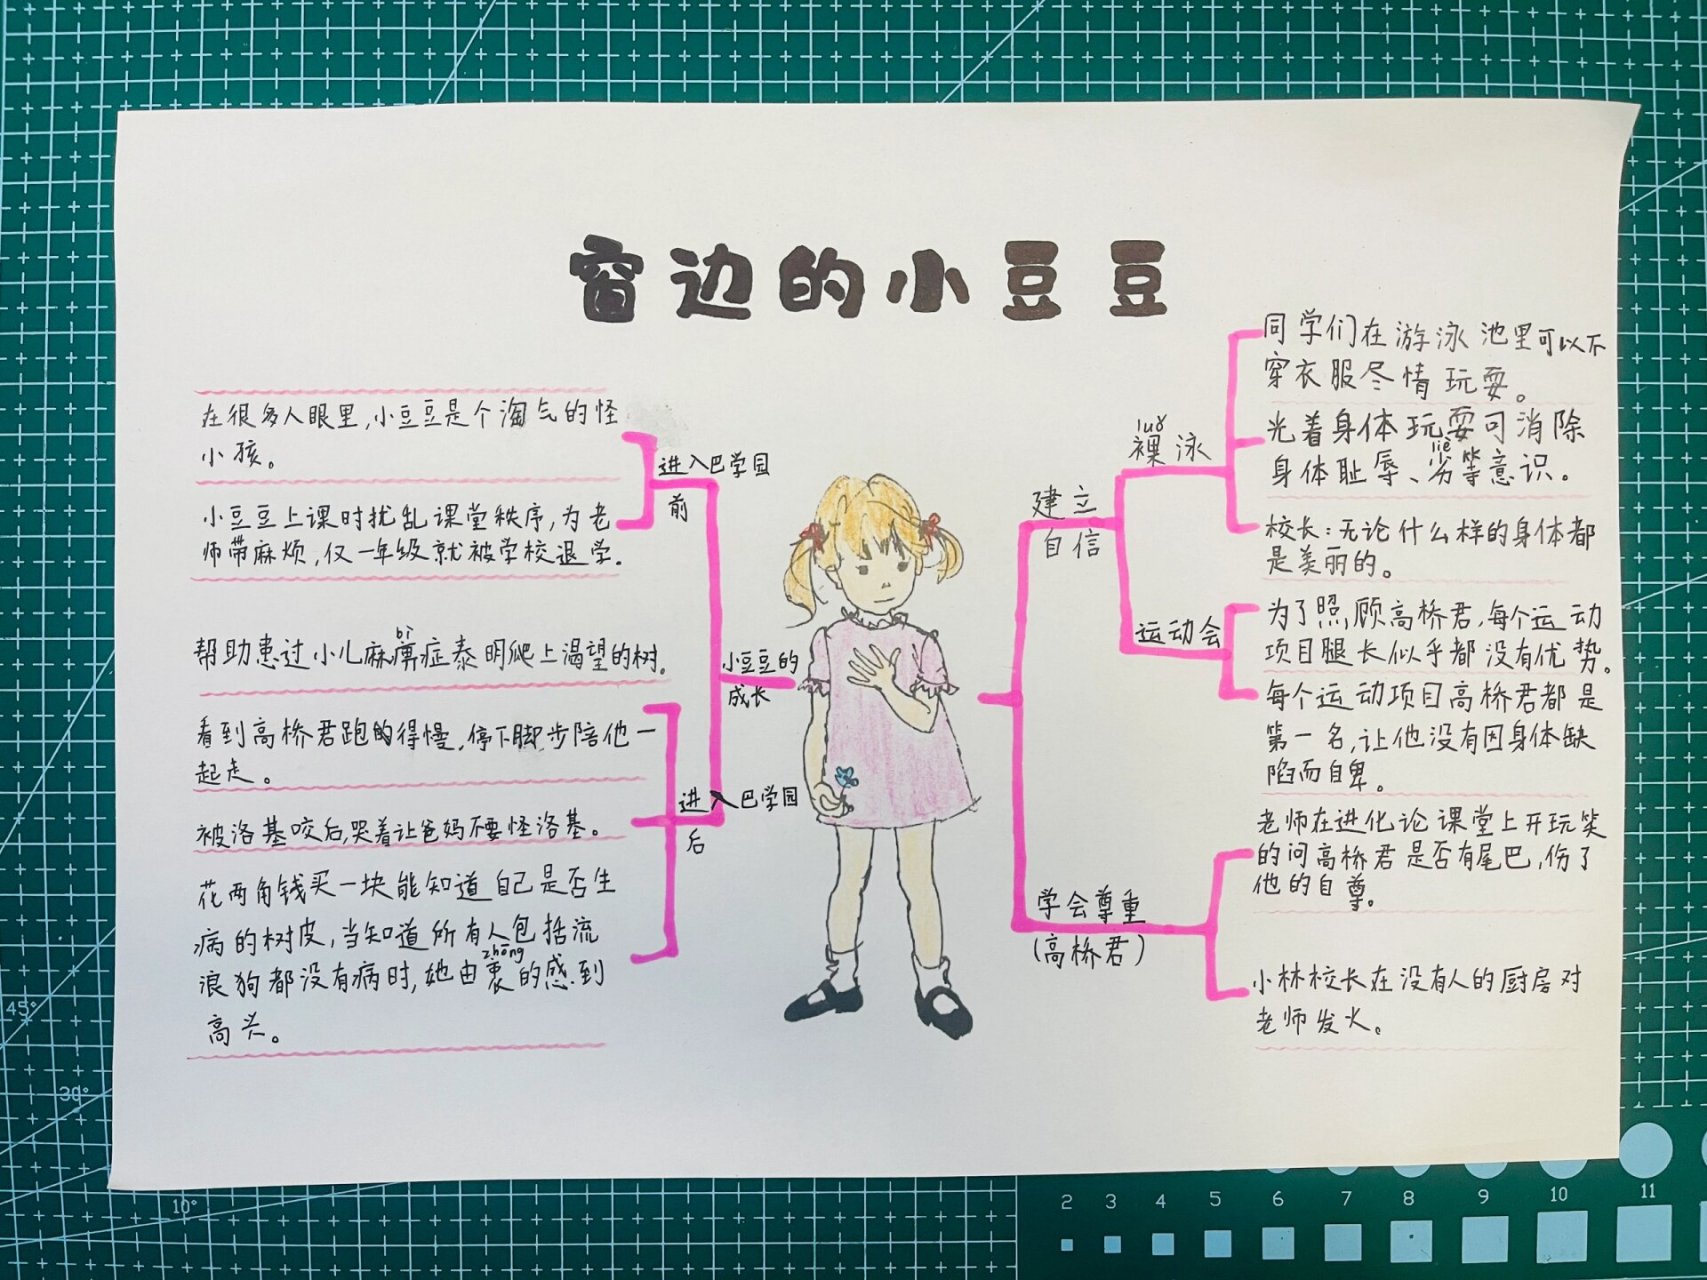 窗边的小豆豆
在很多人眼里,小豆豆是个淘气的怪
小孩。
小豆豆上课时扰乱课堂秩序,为老
师带麻烦,仅一年级就被学校退学.
进入巴学园
前
bì
帮助患过小儿麻痹症泰明爬上渴望的树.
看到高桥君跑的得慢,停下脚步陪他一
起走。
被洛基咬后,哭着让爸妈不要怪洛基。
花两角钱买一块能知道自己是否生
病的树皮,当知道所有人包括流
zhōng
浪狗都没有病时,她由衷的感到
高兴。
进入巴学园
后
小豆豆的
成长
建立
自信
luǒ
裸泳
同学们在游泳池里可以不
穿衣服尽情玩耍。
光着身体玩耍可消除
liè
身体耻辱、劣等意识。
校长:无论什么样的身体都
是美丽的。
运动会
为了照顾高桥君,每个运动
项目腿长似乎都没有优势。
每个运动项目高桥君都是
第一名,让他没有因身体缺
陷而自卑。
学会尊重
(高桥君)
老师在进化论课堂上开玩笑
的问高桥君是否有尾巴,伤了
他的自尊。
小林校长在没有人的厨房对
老师发火。
45°
30°
10°
2 3 4 5 6 7 8 9 10 11